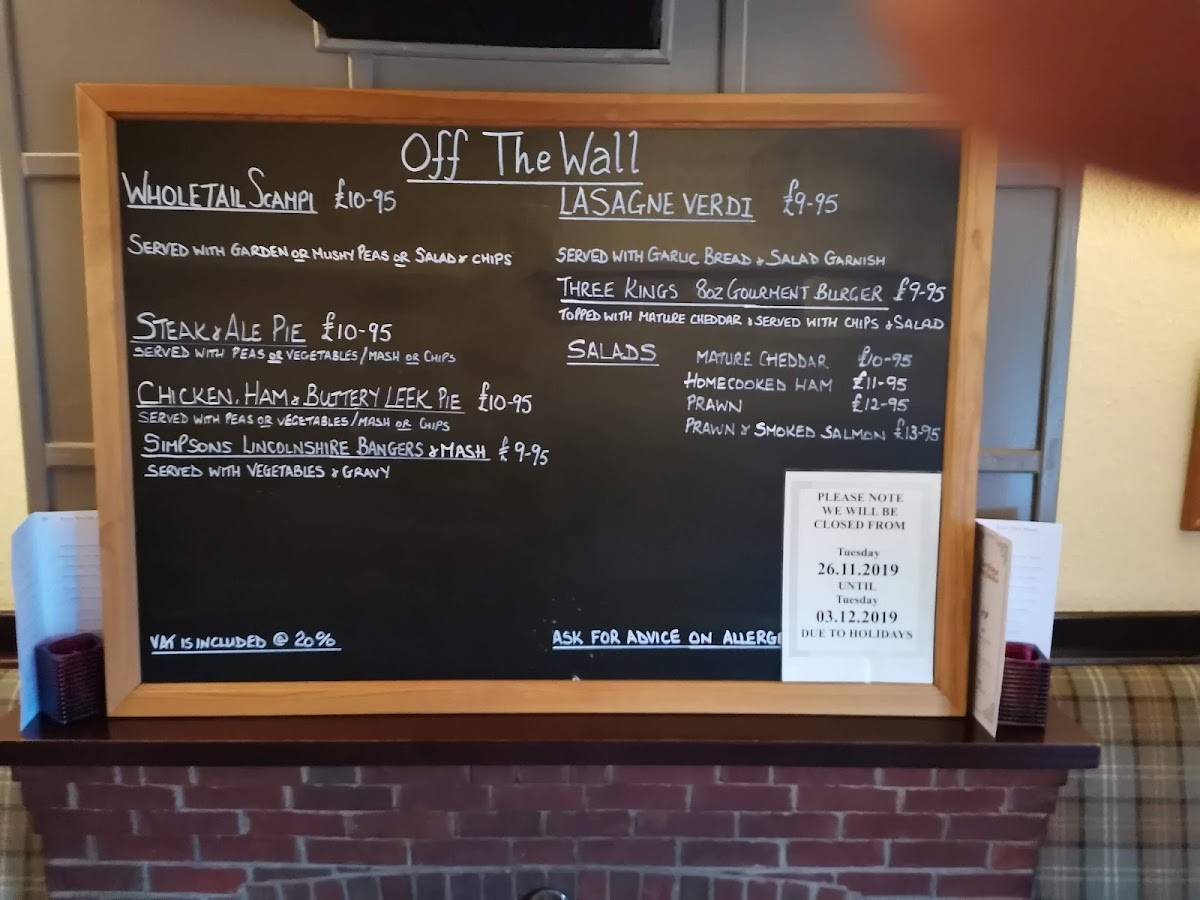 Off The Wall
WHOLETAIL SCAMPI £10-95
SERVED WITH GARDEN OR MUSHY PEAS OR SALAD & CHIPS
STEAK & ALE PIE £10-95
SERVED WITH PEAS OR VEGETABLES/MASH OR CHIPS
CHICKEN, HAM & BUTTERY LEEK PIE £10-95
SERVED WITH PEAS OR VEGETABLES/MASH OR CHIPS
SIMPSONS LINCOLNSHIRE BANGERS & MASH £9-95
SERVED WITH VEGETABLES & GRAVY
VAT IS INCLUDED @ 20%
LASAGNE VERDI £9-95
SERVED WITH GARLIC BREAD & SALAD GARNISH
THREE KINGS 8OZ GOURMENT BURGER £9-95
TOPPED WITH MATURE CHEDDAR & SERVED WITH CHIPS & SALAD
SALADS MATURE CHEDDAR £10-95
HOMECOOKED HAM £11-95
PRAWN £12-95
PRAWN & SMOKED SALMON £13-95
ASK FOR ADVICE ON ALLERGE
PLEASE NOTE
WE WILL BE
CLOSED FROM
Tuesday
26.11.2019
UNTIL
Tuesday
03.12.2019
DUE TO HOLIDAYS